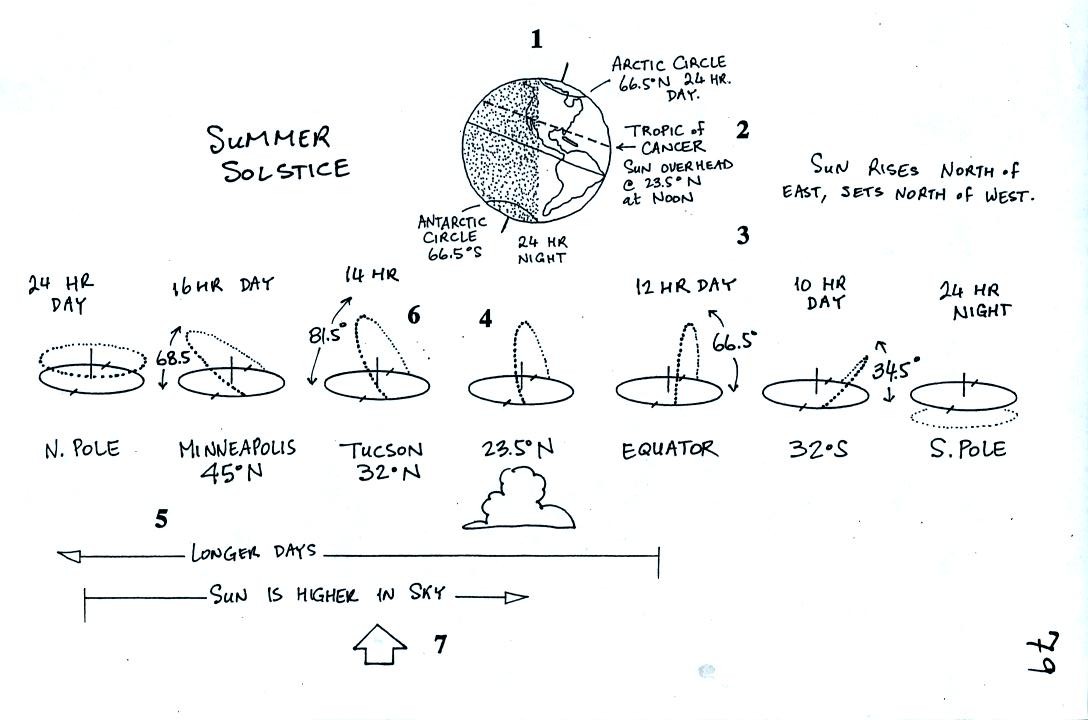 1
ARCTIC CIRCLE
66.5°N 24 HR.
DAY.
SUMMER
SOLSTICE
2
TROPIC of
CANCER
SUN OVERHEAD
@ 23.5°N
at NOON
SUN RISES NORTH of
EAST, SETS NORTH of WEST.
ANTARCTIC
CIRCLE
66.5°S
24 HR
NIGHT
3
24 HR
DAY
16 HR DAY
14 HR
12 HR DAY
10 HR
DAY
24 HR
NIGHT
68.5°
81.5°
6
4
66.5°
34.5°
N. POLE
MINNEAPOLIS
45°N
TUCSON
32°N
23.5°N
EQUATOR
32°S
S. POLE
5
LONGER DAYS
SUN IS HIGHER IN SKY
7
79